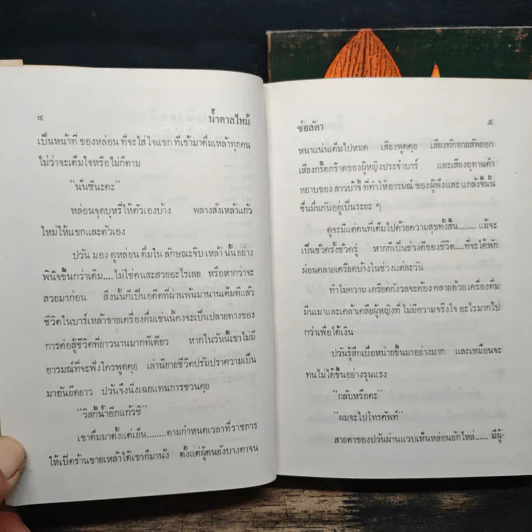 ๔
น้ำตาลไหม้
เป็นหน้าที่ ของหล่อน ที่จะใส่ ใจแขก ที่เข้ามาดื่มเหล้าทุกคน
ไม่ว่าจะเต็มใจหรือไม่ก็ตาม
"นั่นซีนะคะ"
หล่อนจุดบุหรี่ให้ตัวเองบ้าง พลางสั่งเหล้าแก้ว
ใหม่ให้แขกและตัวเอง
ปวัน มอง ดูหล่อน ดื่มใน ลักษณะจิบ เหล้า นั้น อย่าง
พินิจขึ้นกว่าเดิม....ไม่ใช่คนสะสวยอะไรเลย หรือหากว่าจะ
สวยมาก่อน สิ่งนั้นก็เป็นอดีตที่ผ่านพ้นมานานเต็มทีแล้ว
ชีวิตในบาร์เหล้าขายเครื่องดื่มเช่นนี้คงจะเป็นปลายทางของ
การต่อสู้ชีวิตที่ยาวนานมากทีเดียว หากในวันนี้เขาไม่มี
อารมณ์ที่จะฟังใครพูดคุย เล่านิยายชีวิตปรับปราความเป็น
มาอันยืดยาว ปวันจึงนิ่งเฉยแทนการชวนคุย
"วิสกี้น้ำอีกแก้วซิ"
เขาดื่มมาตั้งแต่เย็น........ตามกำหนดเวลาที่ราชการ
ให้เปิดร้านขายเหล้าได้เขาก็มานั่ง ตั้งแต่ผู้คนยังบางตาจน
ช่อลัดา
๕
หนาแน่นเต็มไปหมด เสียงพูดคุย เสียงทักทายสัพยอก
เสียงกรีดกร๊าดของผู้หญิงประจำบาร์ และเสียงอุทานคำ
หยาบของ สาวบ้าจี้ ที่ทำให้อารมณ์ ของผู้ฟังและ แกล้งจี้นั้น
ชื่นมื่นกันอยู่เป็นระยะ ๆ
ดูจะมีแต่คนที่เต็มไปด้วยความสุขทั้งสิ้น........ แม้จะ
เป็นชั่วครั้งชั่วครู่ หากก็เป็นช่วงดีของชีวิต....ที่จะได้พัก
ผ่อนคลายเครียดบ้างในช่วงแต่ละวัน
ทำไมความ เครียดกังวลจะต้อง คลายด้วย เครื่องดื่ม
มึนเมาและเคล้าเคลียผู้หญิงที่ ไม่มีความจริงใจ อะไรมากไป
กว่าเพื่อได้เงิน
ปวันรู้สึกเบื่อหน่ายขึ้นมาอย่างมาก และเหมือนจะ
ทนไม่ได้ขึ้นอย่างรุนแรง
"กลับหรือคะ"
"ผมจะไปโทรศัพท์"
สายตาของปวันผ่านแวบเห็นหล่อนยักไหล่...... มีผู้-